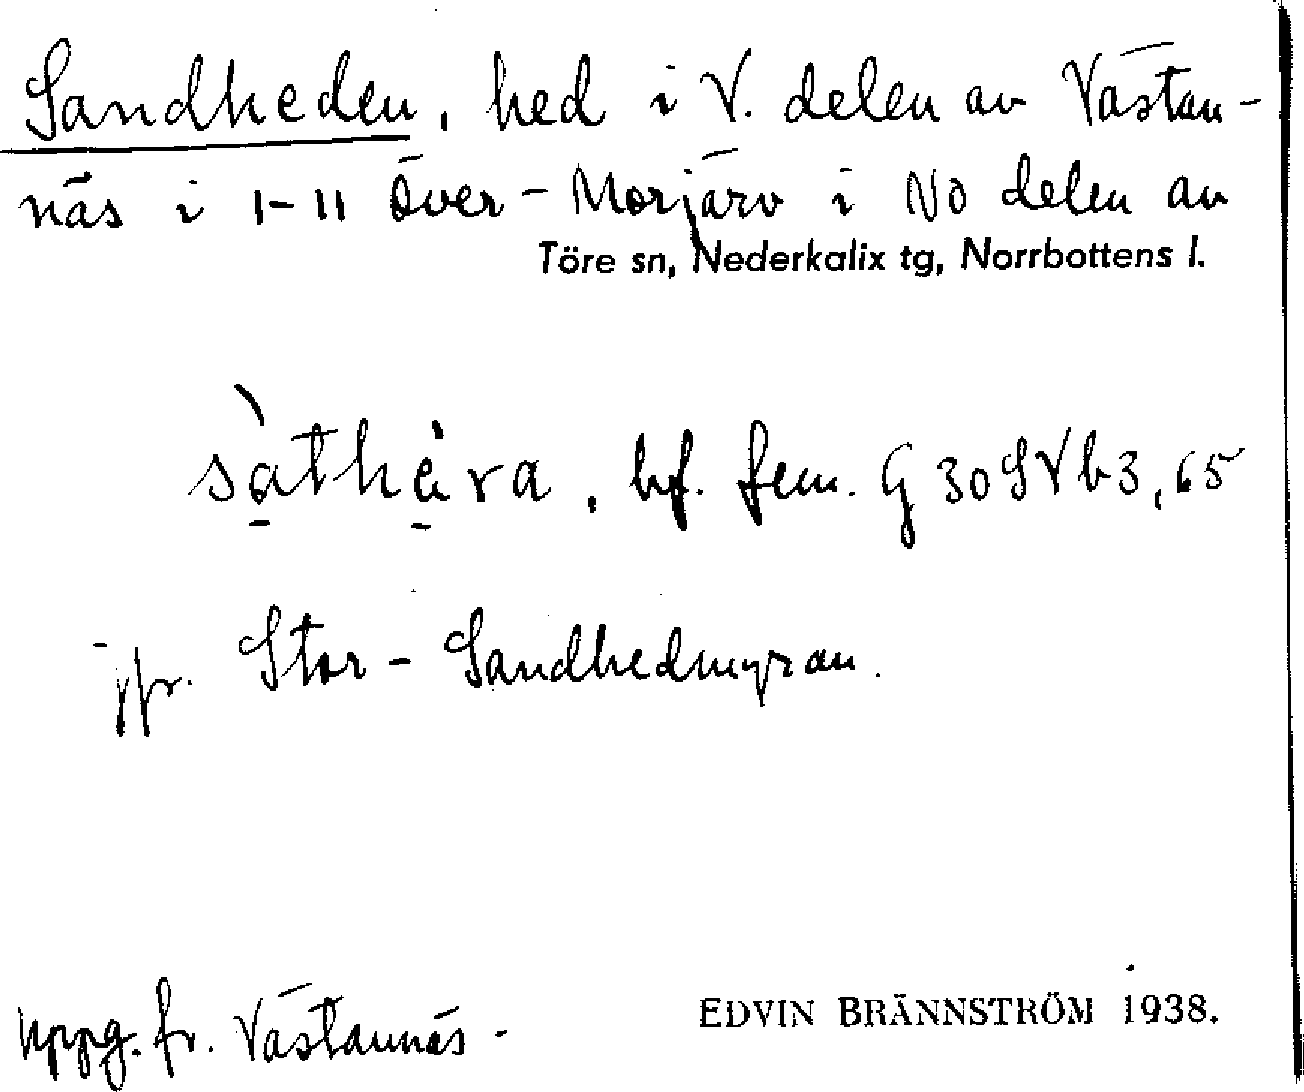 Sandheden, hed i V. delen av Västan-
näs i 1-11 Över-Morjärv i NO delen av
Töre sn, Nederkalix tg, Norrbottens l.
bf. fem. G 30 SV b3, 65
jfr. Stor-Sandhedmyran.
uppg. fr. Västannäs.
EDVIN BRÄNNSTRÖM 1938.